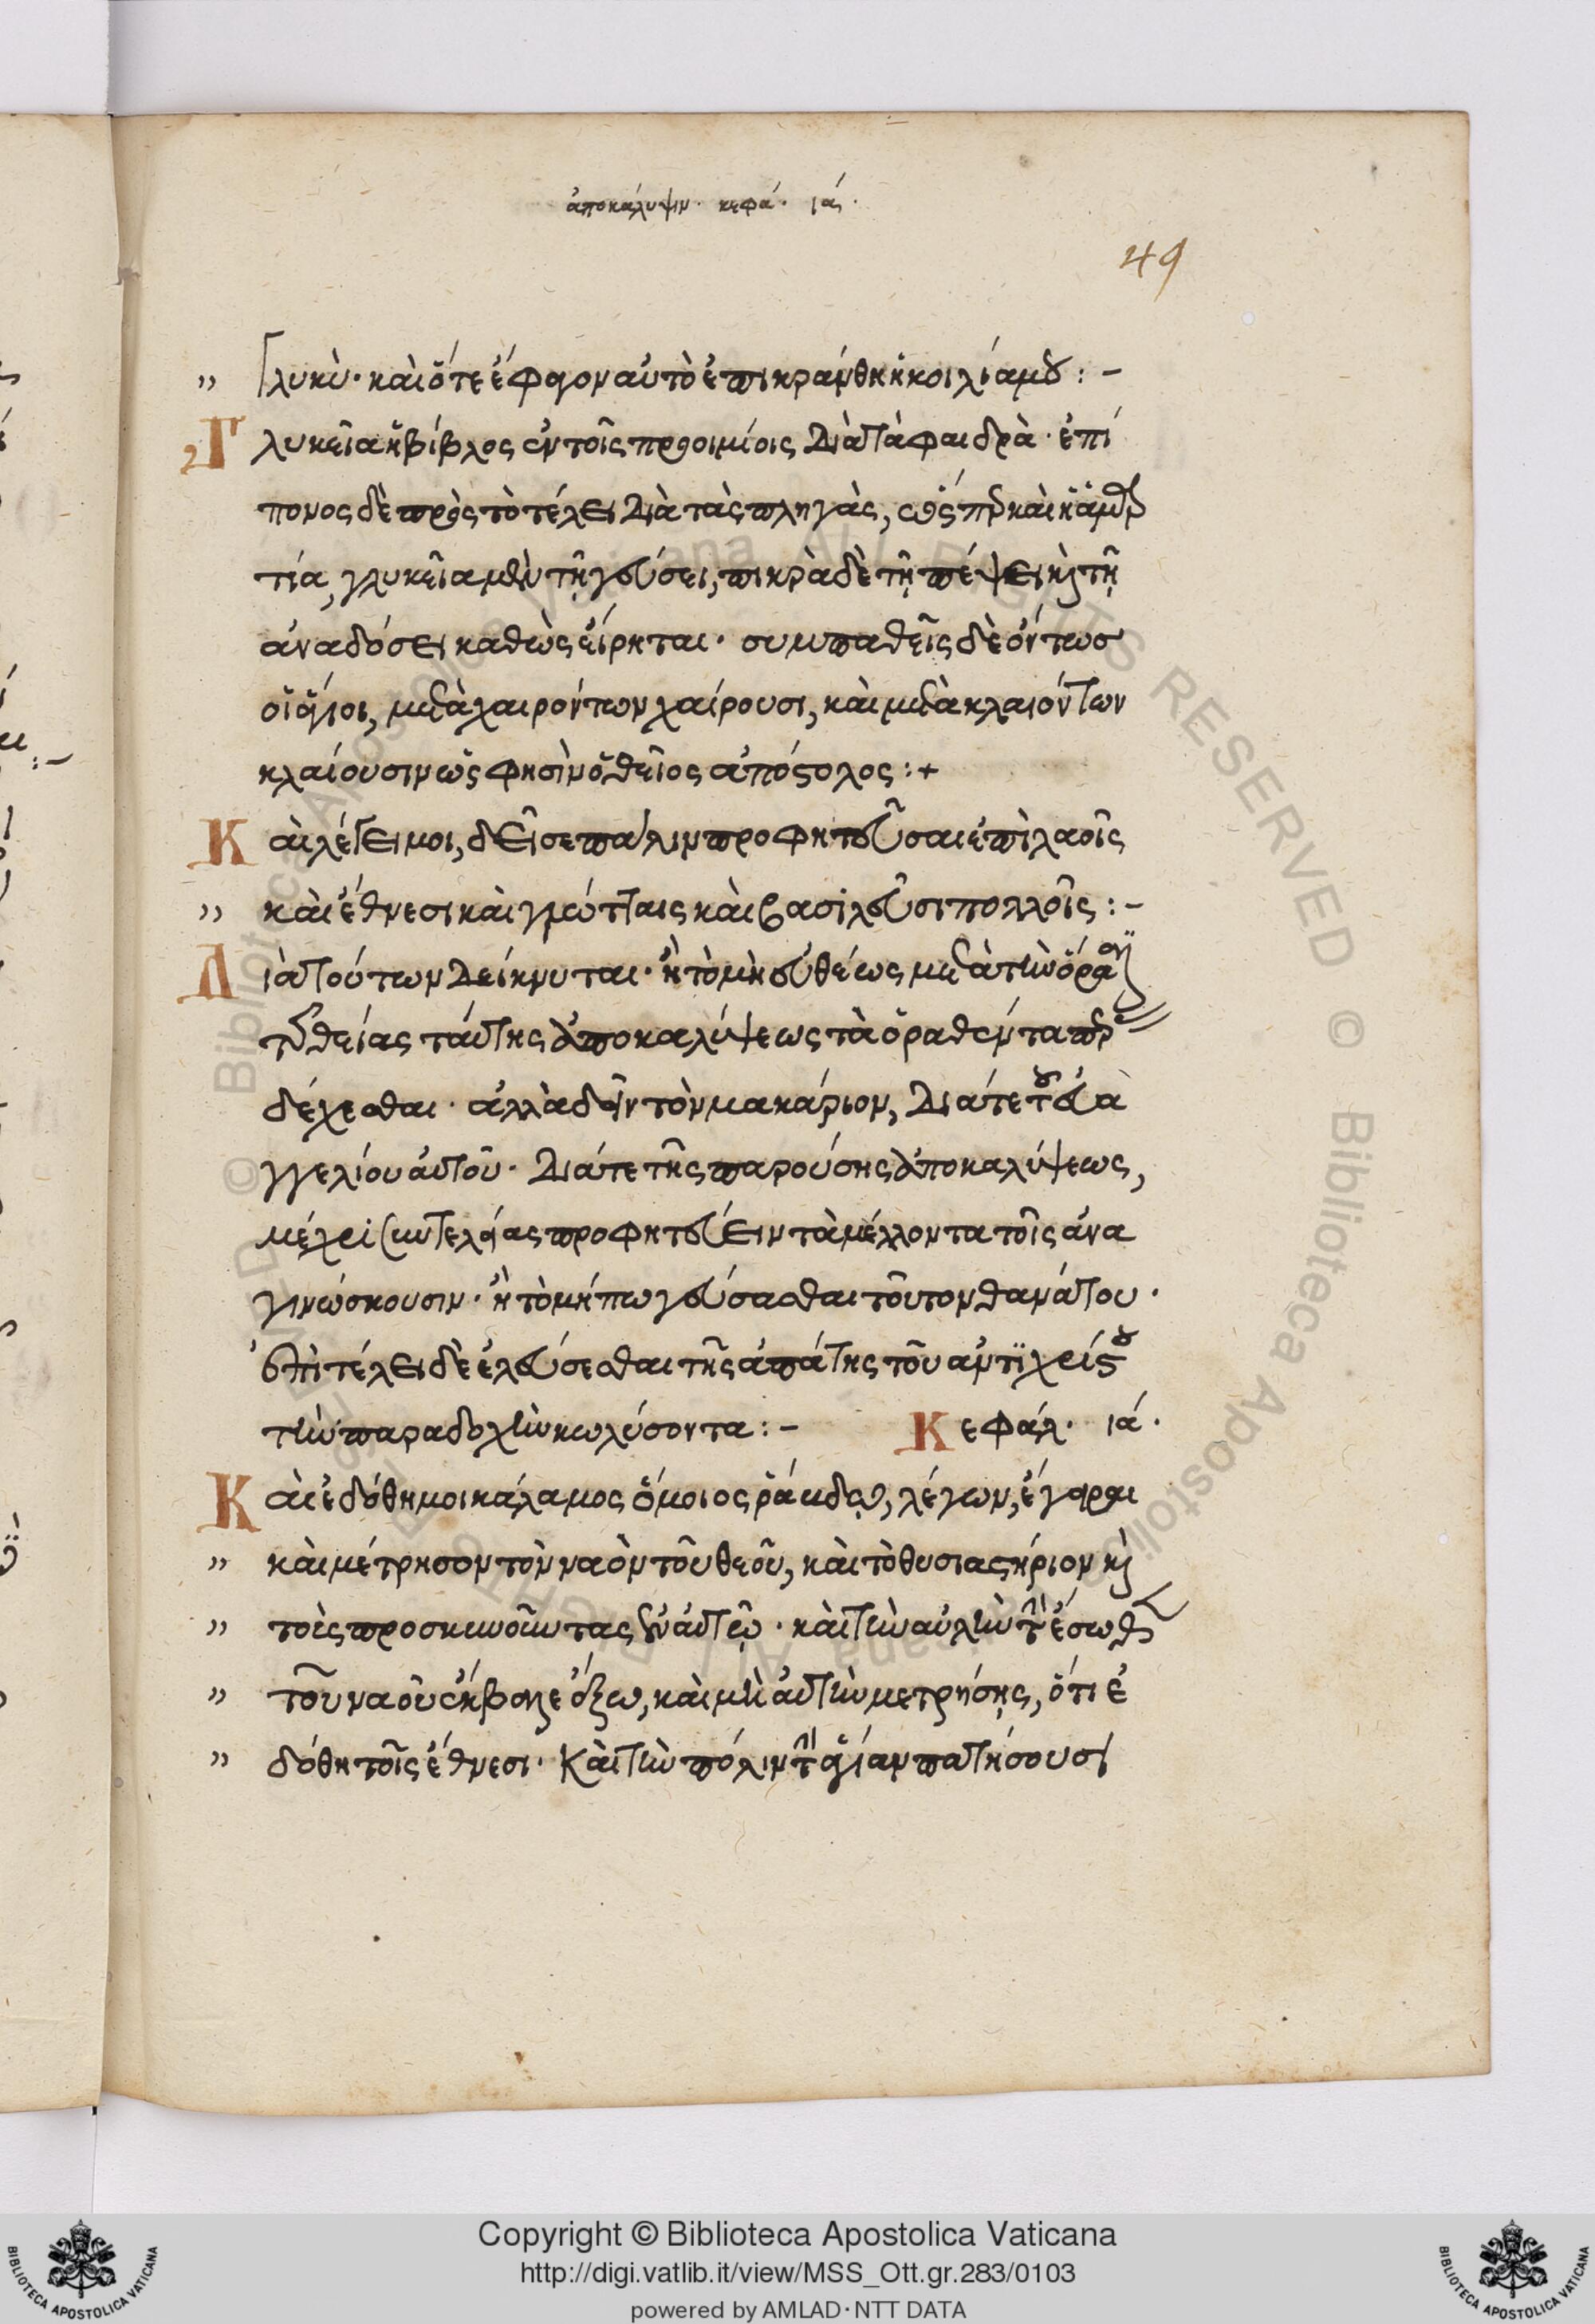 ἀποκάλυψιν· κεφά· ιά·
49
" Γλυκὺ· καὶ ὅτε ἔφαγον αὐτὸ ἐπικράνθη ἡ κοιλία μου :-
Γλυκεῖα ἡ βίβλος ἐν τοῖς προοιμίοις διὰ τὰ φαιδρὰ· ἐπί
πονος δὲ πρὸς τὸ τέλει διὰ τὰς πληγὰς, ὥσπερ καὶ ἡ ἁμαρ
τία, γλυκεῖα μὲν τῇ γεύσει, πικρὰ δὲ τῇ πέψει καὶ τῇ
ἀναδόσει καθὼς εἴρηται· συμπαθεῖς δὲ ὄντως
οἱ ἅγιοι, μετὰ χαιρόντων χαίρουσι, καὶ μετὰ κλαιόντων
κλαίουσιν ὥς φησὶν ὁ θεῖος ἀπόστολος :+
Καὶ λέγει μοι, δεῖ σε πάλιν προφητεῦσαι ἐπὶ λαοῖς
" καὶ ἔθνεσι καὶ γλώτταις καὶ βασιλεῦσι πολλοῖς :-
Διὰ τούτων δείκνυται· ἢ τὸ μὴ εὐθέως μετὰ τὴν ὅρασιν
τῆς θείας ταύτης ἀποκαλύψεως τὰ ὁραθέντα περ
δέχεσθαι· ἀλλὰ δεῖν τὸν μακάριον, διά τε τοῦ εὐα
γγελίου αὐτοῦ· διά τε τῆς παρούσης ἀποκαλύψεως,
μέχρι συντελείας προφητεύειν τὰ μέλλοντα τοῖς ἀνα
γινώσκουσιν· ἢ τὸ μήπω γεύσασθαι τοῦτον θανάτου·
ἐπὶ τέλει δὲ ἐλεύσεσθαι τῆς ἀπάτης τοῦ ἀντιχρίστου
τὴν παραδοχὴν κωλύσοντα :- Κεφάλ· ιά·
Καὶ ἐδόθη μοι κάλαμος ὅμοιος ῥάβδῳ, λέγων, ἔγειραι
" καὶ μέτρησον τὸν ναὸν τοῦ θεοῦ, καὶ τὸ θυσιαστήριον καὶ
" τοὺς προσκυνοῦντας ἐν αὐτῷ· καὶ τὴν αὐλὴν τὴν ἔσωθεν
" τοῦ ναοῦ ἔκβαλε ἔξω, καὶ μὴ αὐτὴν μετρήσῃς, ὅτι ἐ
" δόθη τοῖς ἔθνεσι· Καὶ τὴν πόλιν τὴν ἁγίαν πατήσουσι
Copyright © Biblioteca Apostolica Vaticana
http://digi.vatlib.it/view/MSS_Ott.gr.283/0103
powered by AMLAD·NTT DATA